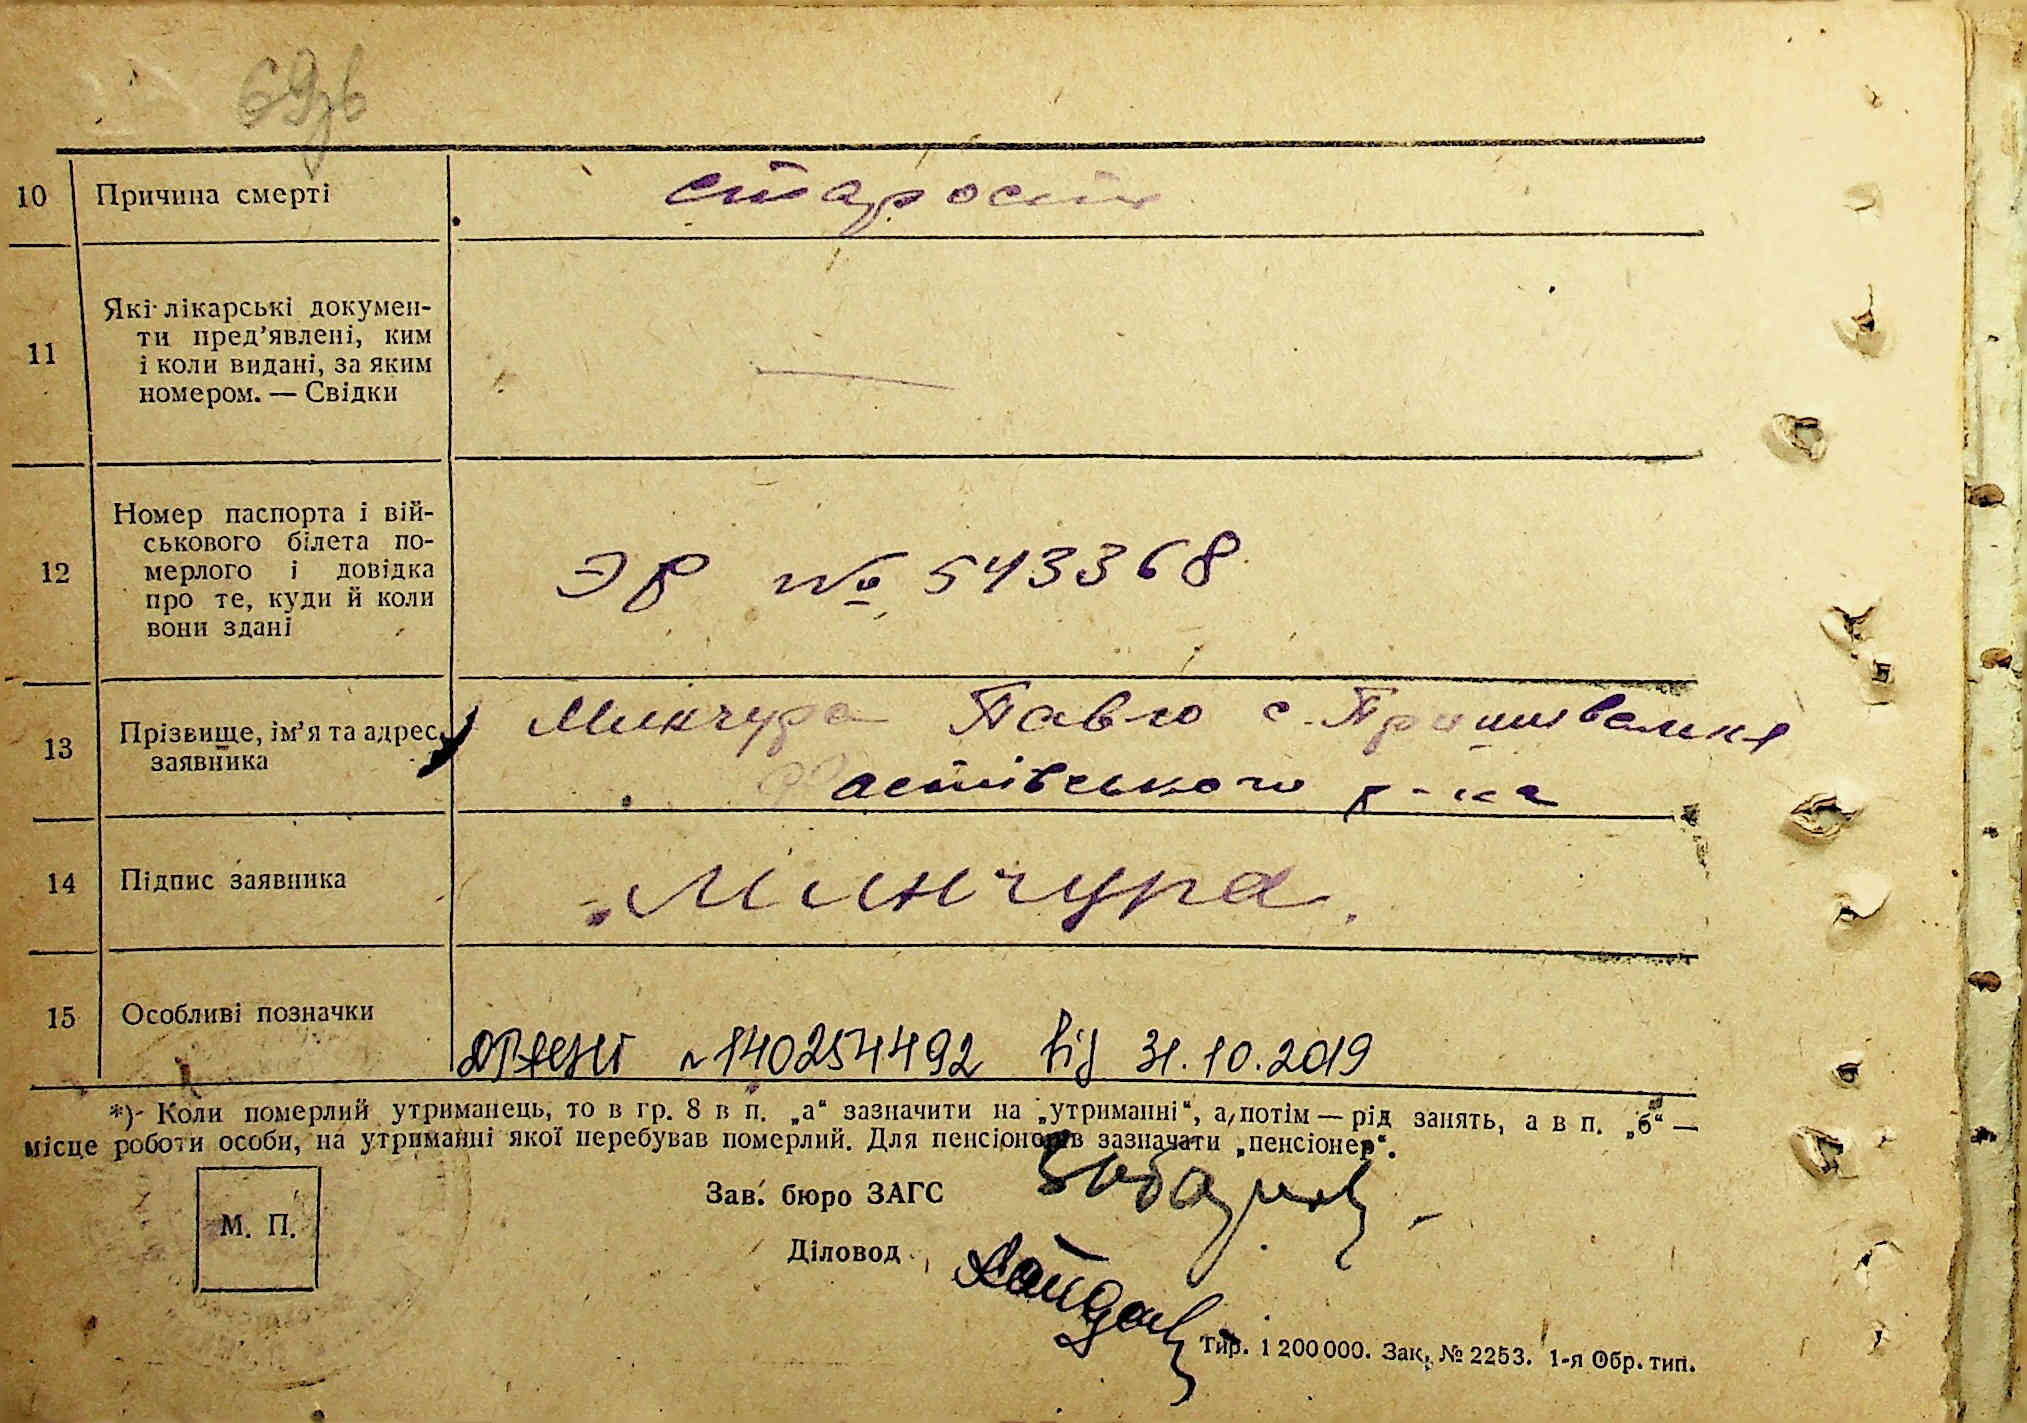 69зв
10 Причина смерті старость
11 Які лікарські докумен-
ти пред’явлені, ким
і коли видані, за яким
номером. — Свідки —
Номер паспорта і вій-
ськового білета по-
12 мерлого і довідка ЭР № 543368
про те, куди й коли
вони здані
13 Прізвище, ім’я та адрес Минчура Павло с.
заявника астівського р-на
14 Підпис заявника Минчура.
15 Особливі позначки
№140254492 від 31.10.2019
*) Коли померлий утриманець, то в гр. 8 в п. „а“ зазначити на „утриманні“, а потім — рід занять, а в п. „б“ —
місце роботи особи, на утриманні якої перебував померлий. Для пенсіонерів зазначати „пенсіонер“.
Зав. бюро ЗАГС
М. П.
Діловод
Тир. 1 200 000. Зак. № 2253. 1-я Обр. тип.